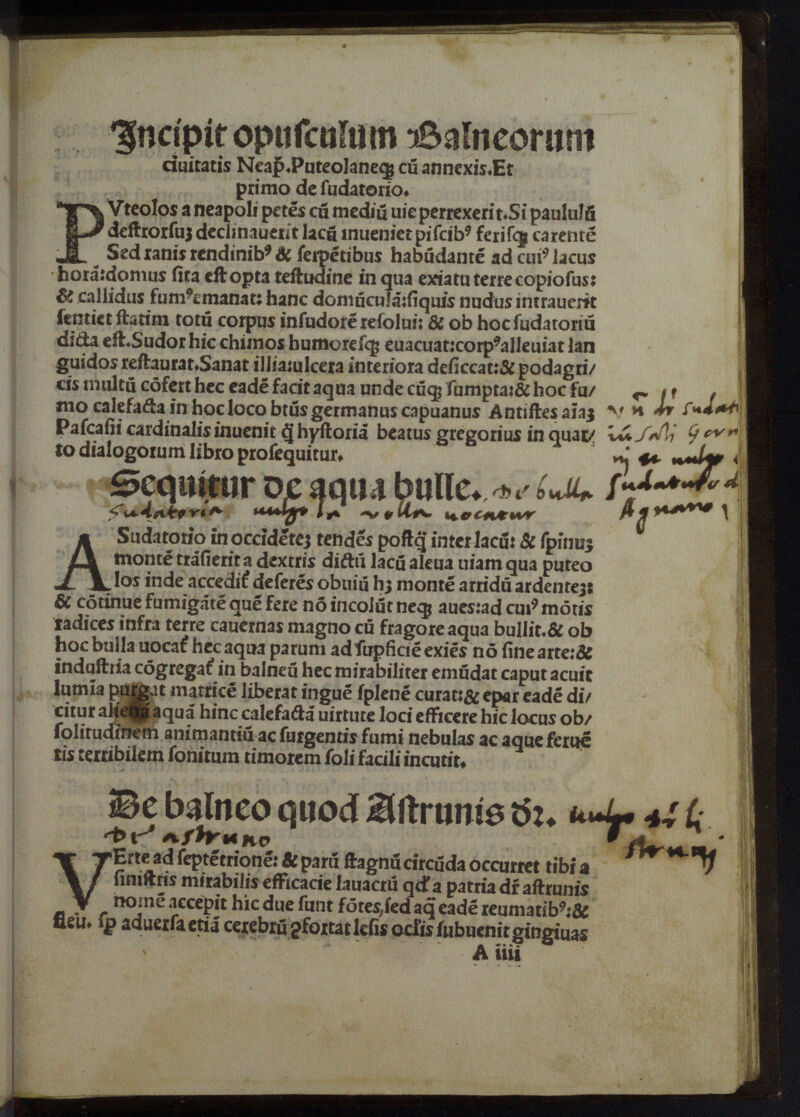 Incipit opuſculum Balneorum
ciuitatis Neap̄.Puteolaneqꝫ cū annexis.Et
primo de ſudatorio.
PVteolos a neapoli petēs cū mediū uie perrexerit.Si paululū
deſtrorſuꝫ declinauerit lacū inueniet piſcibꝰ feriſqꝫ carentē
Sed ranis rendinibꝰ & ſerpētibus habūdantē ad cuiꝰ lacus
horā:domus ſita eſt opta teſtudine in qua exiatu terre copioſus:
& callidus fumꝰemanat: hanc domūculā:ſiquis nudus intrauerit
ſentiet ſtatim totū corpus inſudorē reſolui: & ob hoc ſudatoriū
dicta eſt.Sudor hic chimos humoreſqꝫ euacuat:corpꝰalleuiat lan
guidos reſtaurat.Sanat illia:ulcera interiora deſiccat:& podagri/
cis multū cōfert hec eadē facit aqua unde cūqꝫ ſumpta:& hoc fu/
mo calefacta in hoc loco btūs germanus capuanus Antiſtes aīaꝫ
Paſcaſii cardinalis inuenit q̄ hyſtoriā beatus gregorius in quar/
to dialogorum libro proſequitur.
Sequitur de aqua bulle. de bulla
Sudatoria uulgo la volla uocatur
A Sudatorio in occidēteꝫ tendēs poſtq̄ inter lacū: & ſpinuꝫ
montē trāſierit a dextris dictū lacū aleua uiam qua puteo
los inde accedit̄ deferēs obuiū hꝫ montē arridū ardenteꝫ:
& cōtinue fumigātē quē fere nō incolūt neqꝫ aues:ad cuiꝰ mōtis
radices infra terre cauernas magno cū fragore aqua bullit.& ob
hoc bulla uocat̄ hec aqua parum ad ſupficiē exiēs nō ſine arte:&
induſtria cōgregat̄ in balneū hec mirabiliter emūdat caput acuit
lumia purgat matricē liberat inguē ſplenē curat:& epar eadē di/
citur aquā hinc calefactā uirtute loci efficere hic locus ob/
ſolitudinem animantiū ac ſurgentis fumi nebulas ac aque feruē
tis terribilem ſonitum timorem ſoli facili incutit.
De balneo quod Aſtrunis dr̄. uulgo
de aſtruno
VErte ad ſeptētrionē: & parū ſtagnū circūda occurret tibi a
ſiniſtris mirabilis efficacie lauacrū qd̄ a patria dr̄ aſtrunis
nomē accepit hic due ſunt fōtes,ſed aq̄ eadē reumatibꝰ:&
fleu. ſp̄ aduerſa etiā cerebrū ꝓfortat leſis ocl̄is ſubuenit gingiuas
A iiii